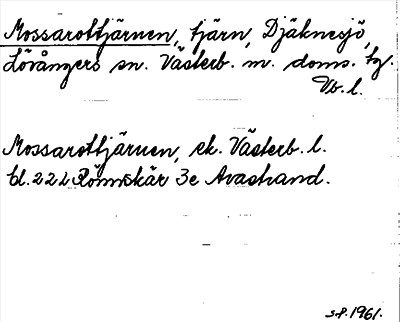 Mossarottjärnen, tjärn, Djäknesjö,
Lövångers sn. Västerb. m. doms. tg.
Vb. l.
Mossarottjärnen, ek. Västerb. l.
bl. 22 L Rönnskär 3e Avastrand.
s.p. 1961.